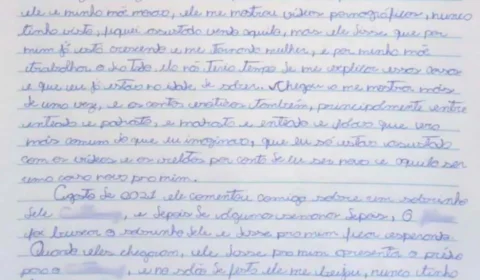 ele e minha mãe, ele me mostrou vídeos pornográficos, nunca
tinha visto, fiquei assustada vendo aquilo, mas ele disse que por
mim já está crescendo e me tornando mulher, e por minha mãe
trabalhar o dia todo ela não teria tempo de me explicar essas coisas
e que eu já estava na idade de saber. Chegou a me mostrar mais
de uma vez, e os contos eróticos também, principalmente entre
enteada e padrasto, e e enteada e falava que era
mais comum do que eu imaginava, que eu só estava assustada
com os vídeos e os relatos por conta de eu ser nova e aquilo ser
uma coisa nova pra mim.
Agosto de 2021 ele comentou comigo sobre um sobrinho
dele , e depois de algumas semanas depois, O
foi buscar o sobrinho dele e disse pra mim ficar esperando.
Quando eles chegaram, ele disse pra mim apresentar o prédio
para o , e no salão de festa ele me beijou, nunca tinha